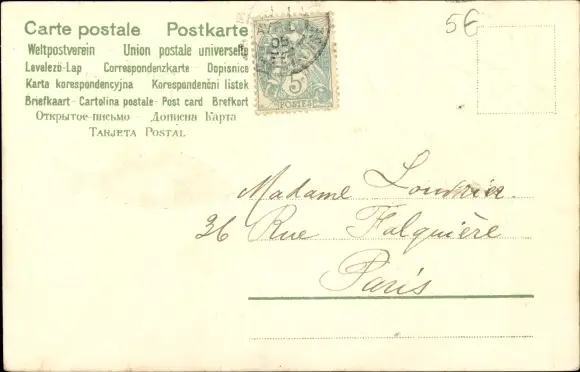 Carte postale Postkarte
Weltpostverein - Union postale universelle
Levelező-Lap Correspondenzkarte - Dopisnice
Karta korespondencyjna Korespondenční lístek
Briefkaart - Cartolina postale - Post card Brefkort
Открытое-письмо - Дописна Карта
Tarjeta Postal
5
POSTES
5€
Madame Louvrier
36 Rue Falguière
Paris